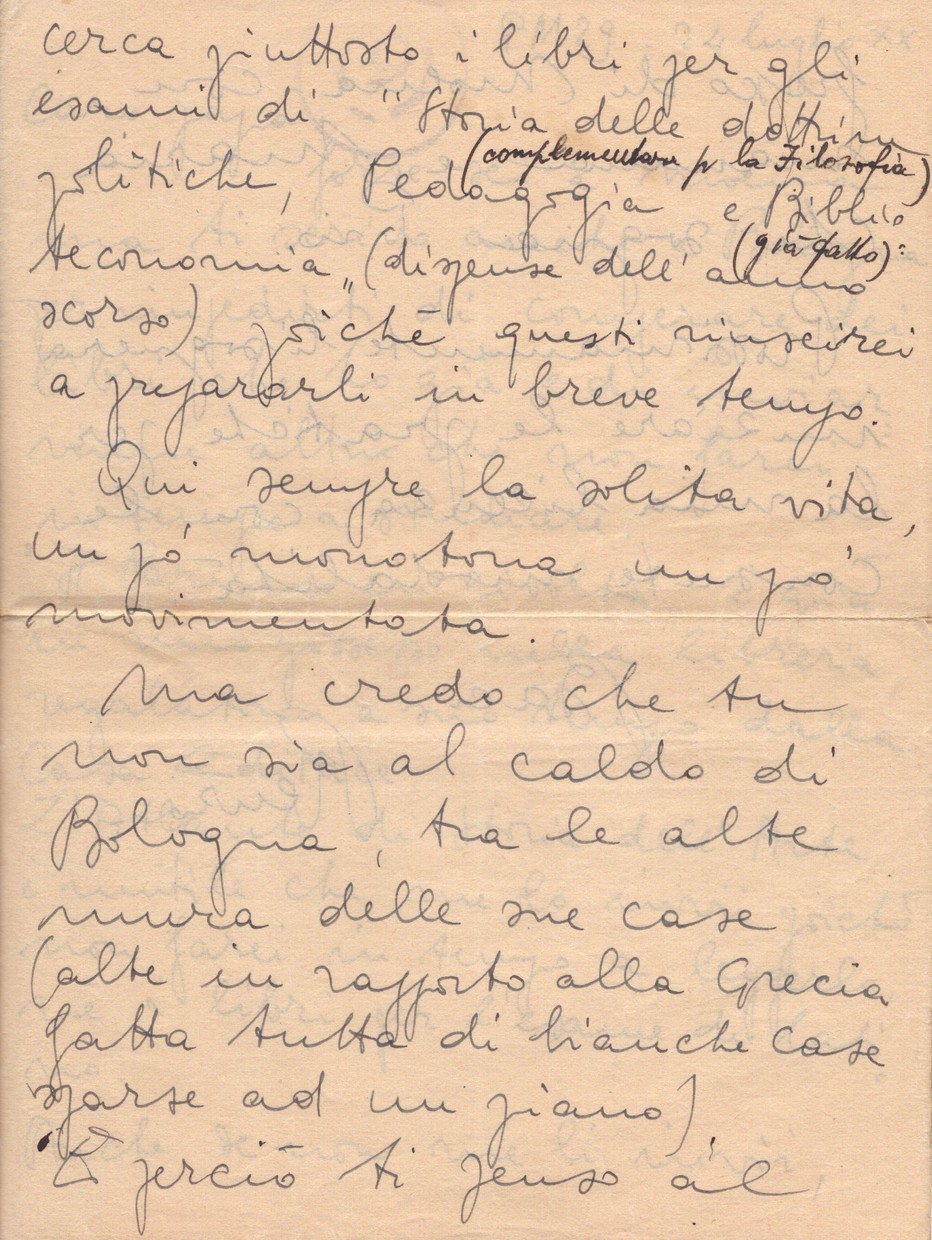 cerca piuttosto i libri per gli
esami di "Storia delle dottrine
(complementare p la Filosofia)
politiche, Pedagogia e Biblio
(già fatto):
teconomia" (dispense dell' anno
scorso) poiché questi riuscirei
a prepararli in breve tempo.
Qui sempre la solita vita,
un pó monotona un pó
movimentata.
Ma credo che tu
non sia al caldo di
Bologna, tra le alte
mura delle sue case
(alte in rapporto alla Grecia
fatta tutta di bianche case
sparse ad un piano)
E perciò ti penso al